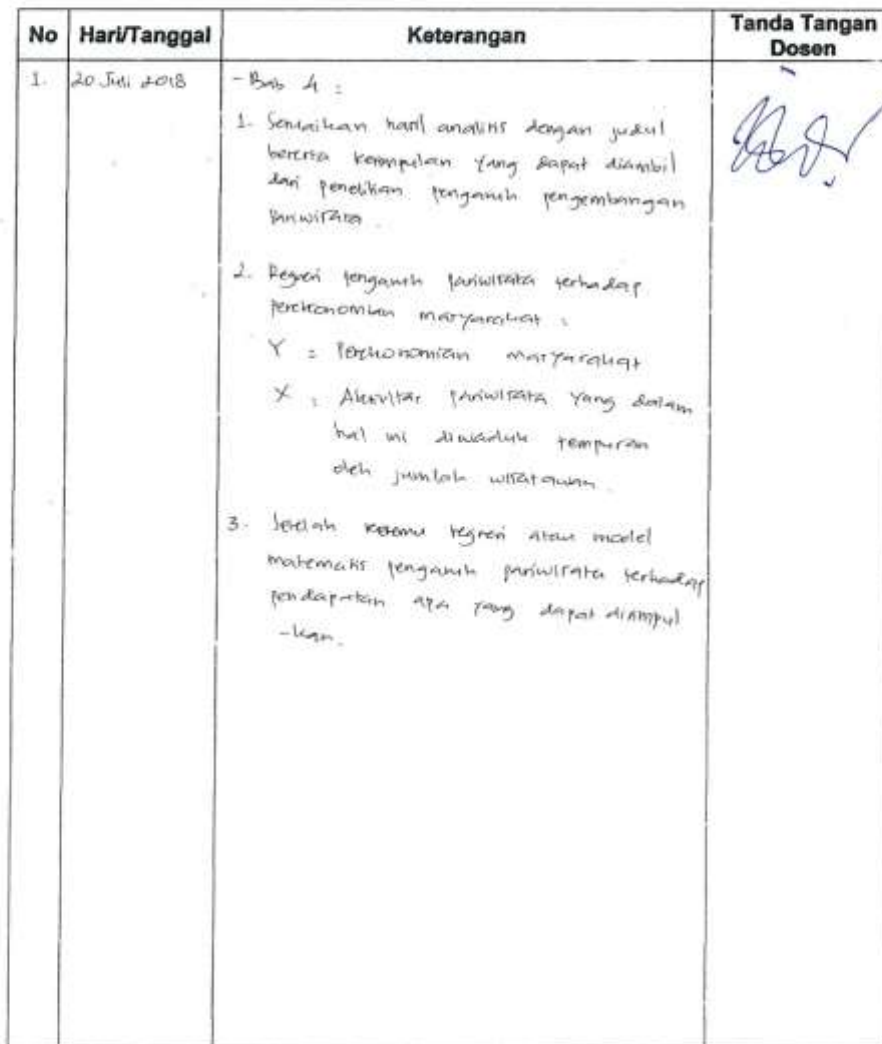 No Hari/Tanggal Keterangan Tanda Tangan Dosen
1. 20 Juli 2018 - Bab 4 :
1. Sesuaikan hasil analisis dengan judul
beserta kesimpulan yang dapat diambil
dari penelitian pengaruh pengembangan
pariwisata.
2. Regresi pengaruh pariwisata terhadap
perekonomian masyarakat :
Y = Perekonomian masyarakat
X : Aktivitas pariwisata yang dalam
hal ini diwaduk tempuran
oleh jumlah wisatawan.
3. Setelah ketemu regresi atau model
matematis pengaruh pariwisata terhadap
pendapatan apa yang dapat disimpul
-kan.